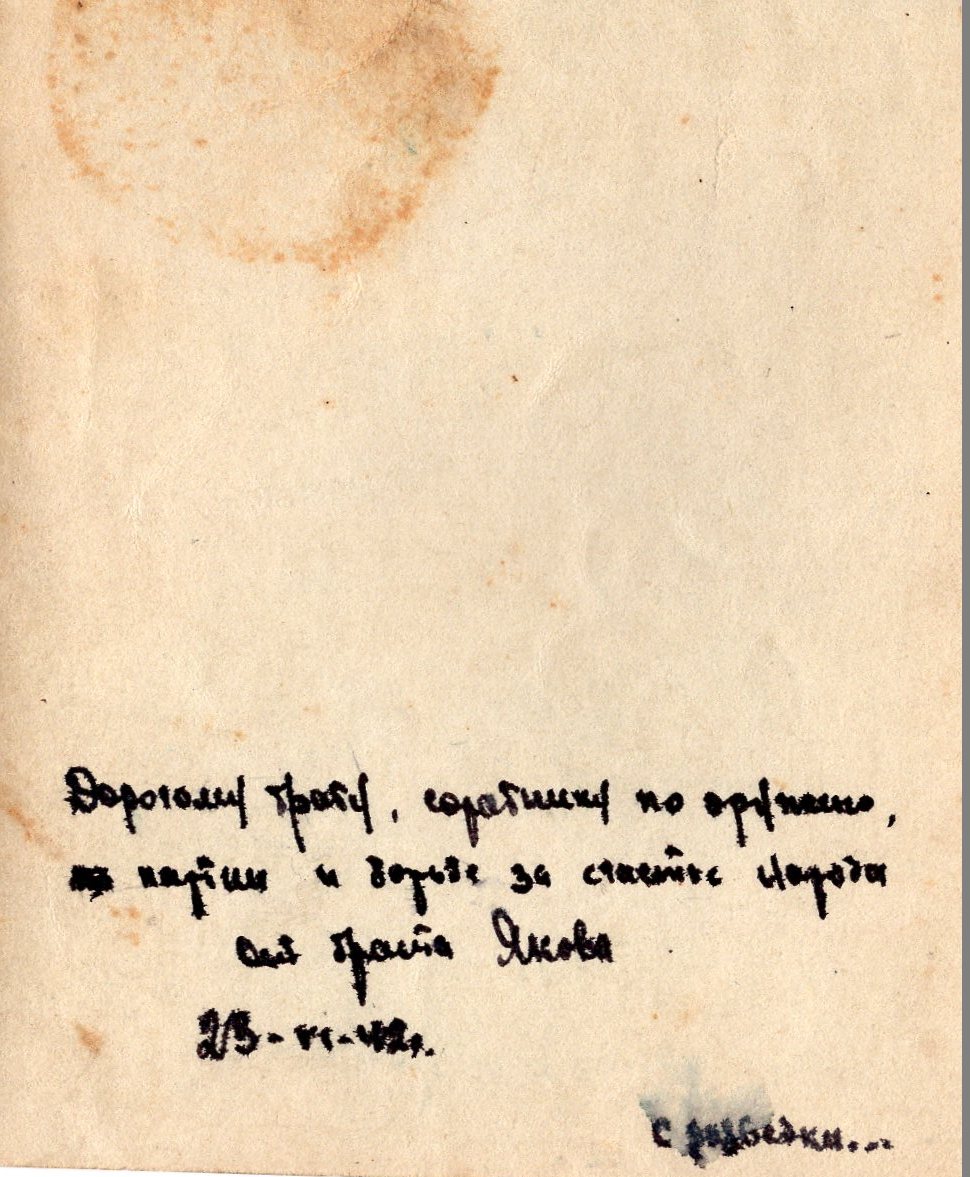 Дорогому брату, соратнику по оружию,
партии и борьбе за счастье народа
от брата Якова
23-VI-42г.
с разведки...